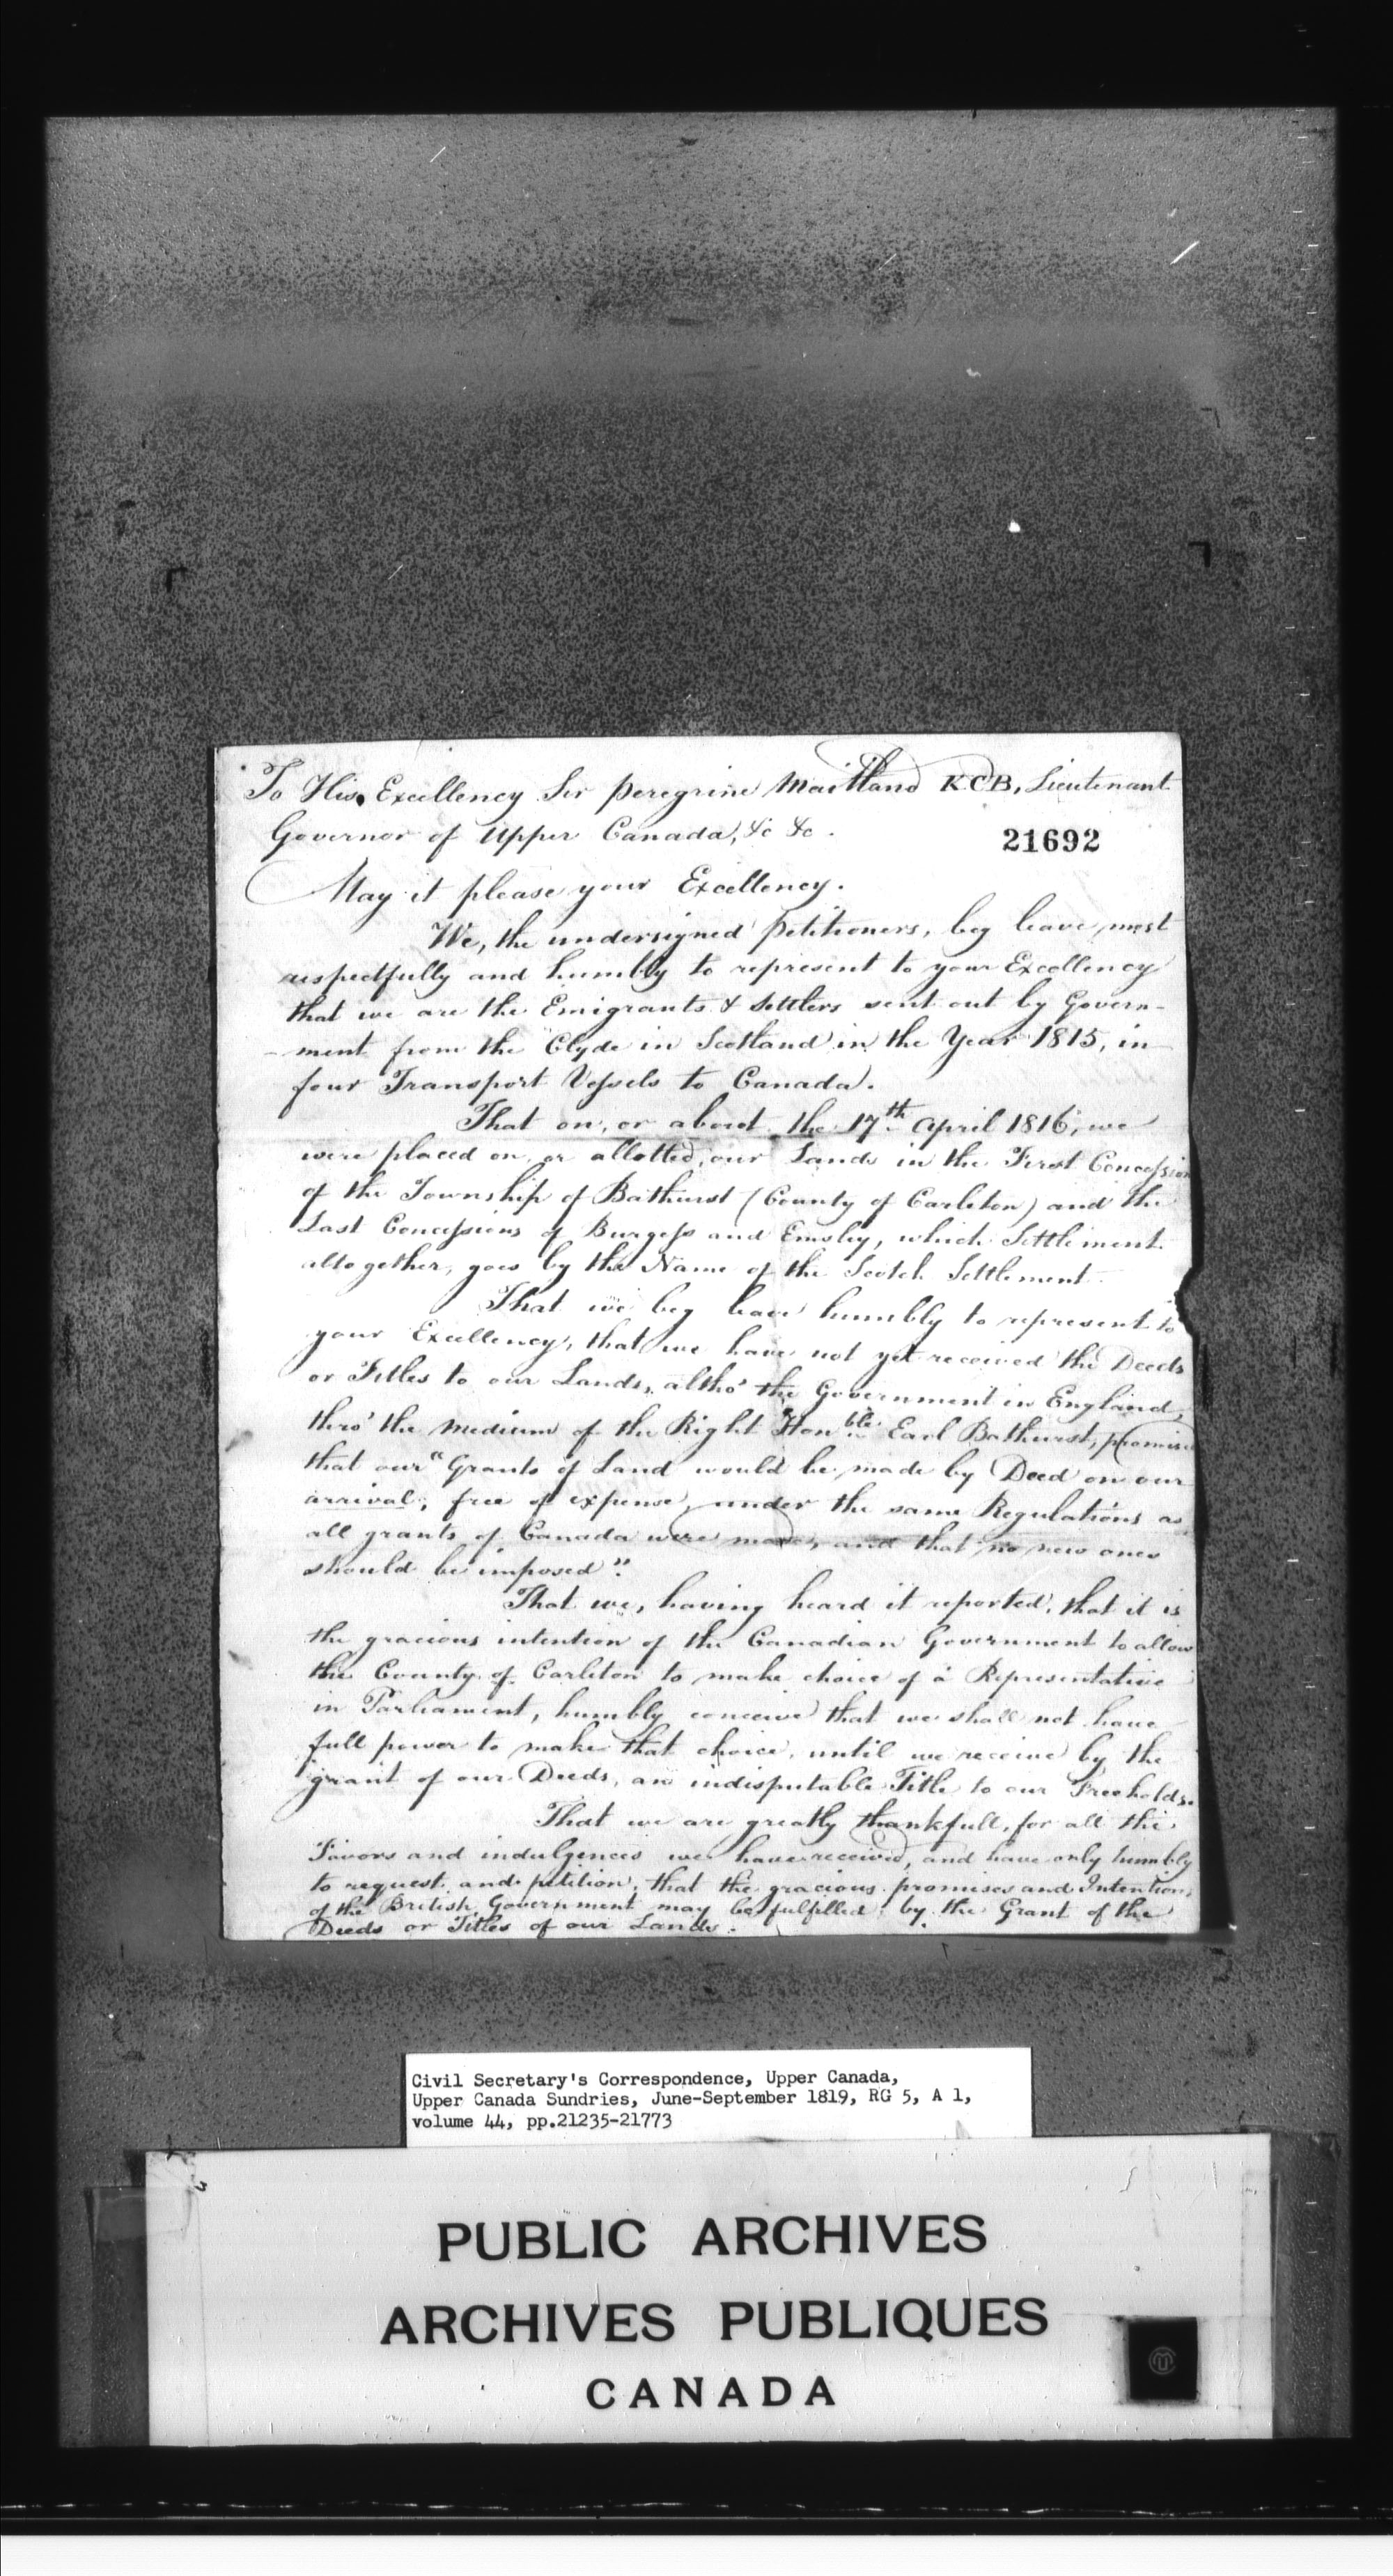 To His Excellency Sir Peregrine Maitland KCB, Lieutenant
Governor of Upper Canada, &c &c.
21692
May it please your Excellency.
We, the undersigned petitioners, beg leave most
respectfully and humbly to represent to your Excellency
that we are the Emigrants & Settlers sent out by Govern-
-ment from the Clyde in Scotland in the Year 1815, in
four Transport Vessels to Canada.
That on, or about the 17th April 1816, we
were placed on, or allotted, our Lands in the First Concession
of the Township of Bathurst (County of Carleton) and the
Last Concessions of Burgess and Emsley, which Settlement
altogether, goes by the Name of the Scotch Settlement.
That we beg leave humbly to represent to
your Excellency, that we have not yet received the Deeds
or Titles to our Lands, altho' the Government in England,
thro' the medium of the Right Honble Earl Bathurst, promised
that our "Grants of Land would be made by Deed on our
arrival, free of expense, under the same Regulations as
all grants of Canada were made, and that no new ones
should be imposed".
That we, having heard it reported, that it is
the gracious intention of the Canadian Government to allow
the County of Carleton to make choice of a Representative
in Parliament, humbly conceive that we shall not have
full power to make that choice, until we receive by the
grant of our Deeds, an indisputable Title to our Freeholds.
That we are greatly thankfull, for all the
Favors and indulgences we have received, and have only humbly
to request and petition, that the gracious promises and Intentions
of the British Government may be fulfilled by the Grant of the
Deeds or Titles of our Lands.
Civil Secretary's Correspondence, Upper Canada,
Upper Canada Sundries, June-September 1819, RG 5, A 1,
volume 44, pp.21235-21773
PUBLIC ARCHIVES
ARCHIVES PUBLIQUES
CANADA